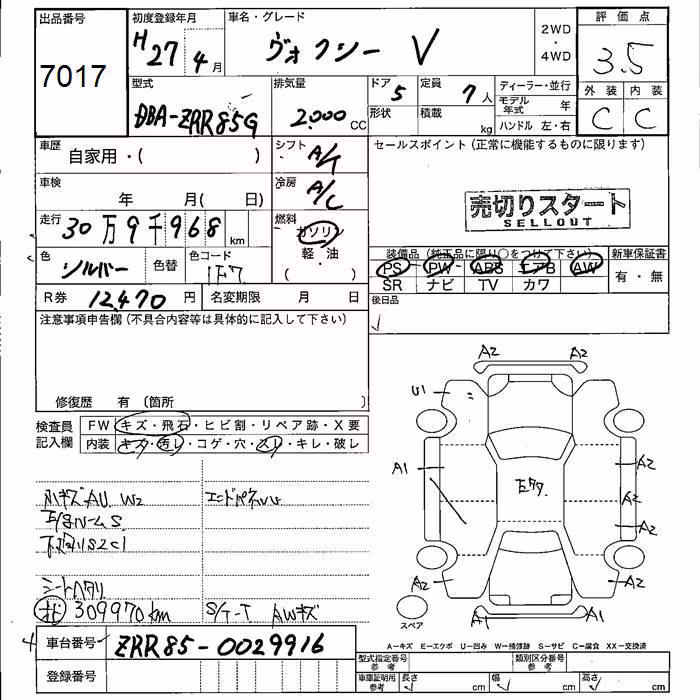 出品番号
7017
初度登録年月
H27年4月
車名・グレード
ヴォクシー V
2WD
・
4WD
評価点
3.5
外装 内装
C C
型式
DBA-ZRR85G
排気量
2.000 CC
ドア 5
形状
定員 7人
積載 kg
ディーラー・並行
モデル年式 年
ハンドル 左・右
車歴
自家用・( )
シフト
A/T
セールスポイント(正常に機能するものに限ります)
売切りスタート
SELLOUT
車検 年 月( 日)
冷房
A/C
走行 30万9千968 km
燃料
ガソリン
軽・油
( )
色 シルバー 色替
色コード
1F7
装備品(純正品に限り○をつけて下さい)
PS PW ABS エアB AW
SR ナビ TV カワ
新車保証書
有・無
R券 12,470 円
名変期限 月 日
後日品
注意事項申告欄(不具合内容等は具体的に記入して下さい)
修復歴 有(箇所 )
検査員
記入欄
FW キズ・飛石・ヒビ割・リペア跡・X要
内装 キズ・汚レ・コゲ・穴・スレ・キレ・破レ
小キズAU W2
シートヘタリ
309970km S/T-T AWキズ
A2 A2
U1
A1
A2
A2
A2
A2 A2
A1 A1
スペア
車台番号 ZRR85-0029916
登録番号
A-キズ E-エクボ U-凹み W-補修跡 S-サビ C-腐食 XX-交換済
型式指定番号
参考
類別区分番号
参考
車庫証明用
参考
長さ cm
幅 cm
高さ cm